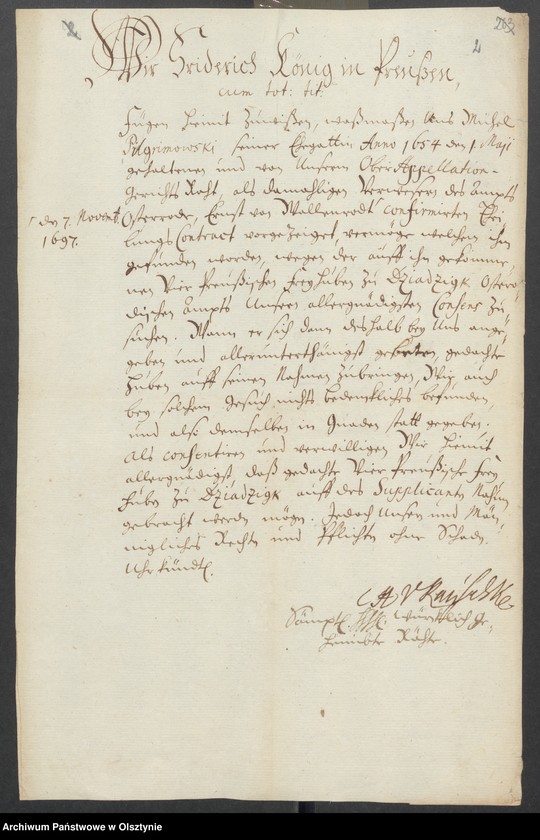 203
4
Wir Friderich König in Preußen,
cum tot: tit:
Fügen hiemit zuwißen, waßmaßen Uns Michel
Pilgrimowski seiner Ehegattin Anno 1654 den 1. Maji
gehaltenen und von Unserm Ober Appellation-
Gerichts Raht, als damahligen Verwesern des Ampts
Osterrode, Ernst von Wallenrodt confirmirten
den 7. Novemb
1697.
lungs Contract vorgezeiget, vermöge welchen ihm
gefunden worden, wegen der auff ihn gekomme-
nen Vier Preußischen Freyhuben zu Dziadzigk Osterro-
dischen Ampts Unsern allergnädigsten Consens zu
suchen. Wann er sich dann deshalb bey Uns ange-
geben und allerunterthänigst gebeten, gedachte
Huben auff seinen Nahmen zubringen, Wir auch
bey solchem Gesuch nichts bedenckliches befunden,
und also demselben in Gnaden statt gegeben.
Als consentiren und verwilligen Wir hiemit
allergnädigst, daß gedachte Vier Preußische Frey
Huben zu Dziadzigk auff des Supplicanten Nahmen
gebracht werden mögen. Jedoch Unsern und Män-
nigliches Rechten und Pflichten ohne Schaden.
Uhrkundl.
Sämptl. würcklich ge-
heimbte Rähte.
Archiwum Państwowe w Olsztynie